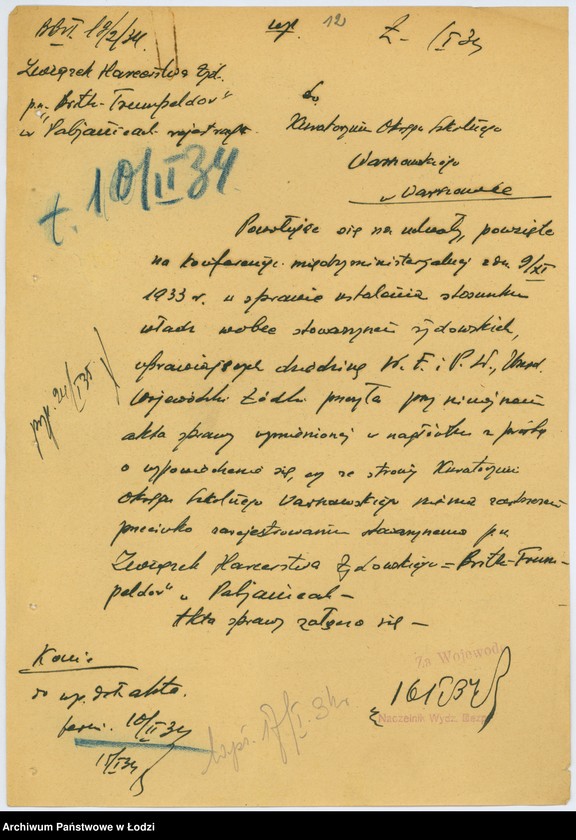 BBI. 19/2/34.
wp. 12 Z- /I 34
Związek Harcerstwa Żyd.
p.n. "Brith-Trumpeldor"
w Pabjanicach rejestracja.
Do
Kuratorjum Okręgu Szkolnego
Warszawskiego
w Warszawie
t. 10/II 34
Powołując się na uchwały, powzięte
na konferencji międzyministerjalnej z dn. 9/XI
1933 r. w sprawie ustalenia stosunku
władz wobec stowarzyszeń żydowskich,
uprawiających dziedzinę W.F. i P.W., Urząd
Wojewódzki Łódzki przesyła przy niniejszem
akta sprawy wymienionej w nagłówku z prośbą
o wypowiedzenie się, czy ze strony Kuratorjum
Okręgu Szkolnego Warszawskiego niema zastrzeżeń
przeciwko zarejestrowaniu stowarzyszenia p.n.
Związek Harcerstwa Żydowskiego "Brith-Trum-
peldor" w Pabjanicach-
Akta sprawy załącza się-
Za Wojewodę
16 I 34
Naczelnik Wydz.
10/II 34
17/I 34
Archiwum Państwowe w Łodzi